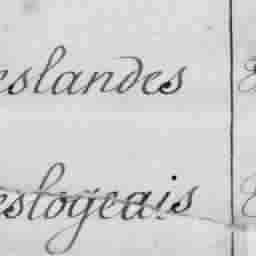 eslandes
eslogeais